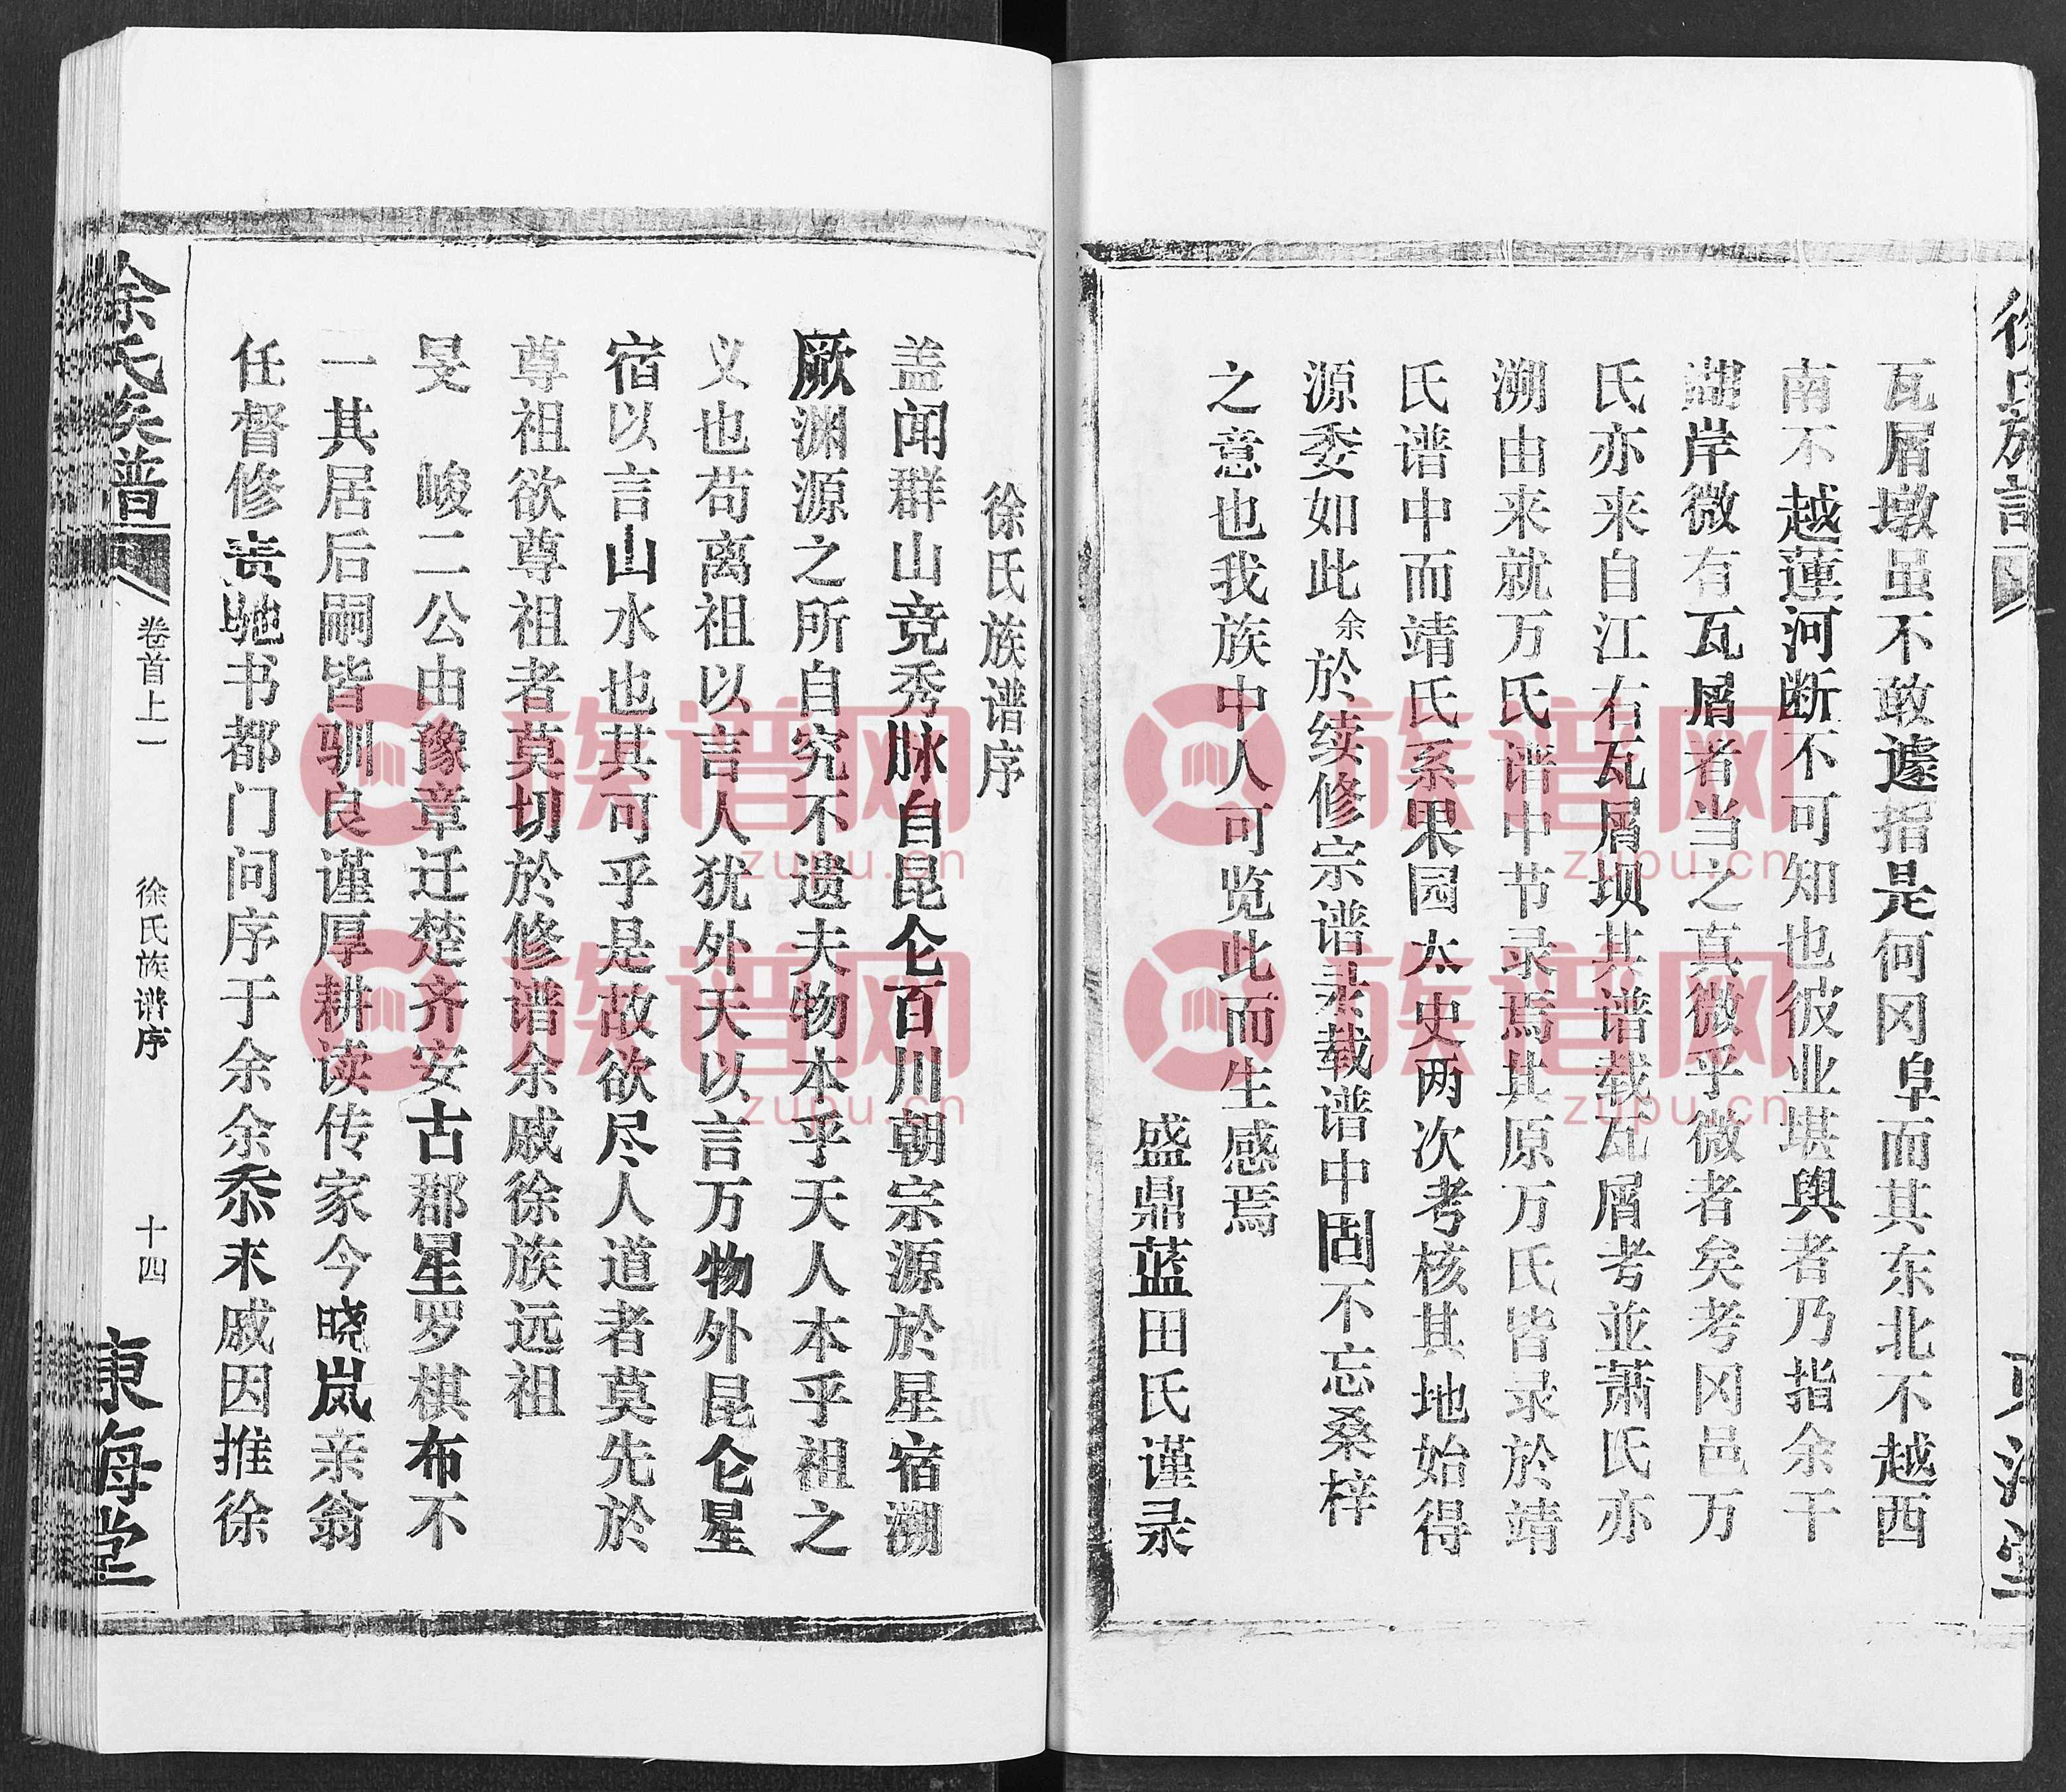 徐氏族谱
东海堂
瓦屑墩虽不敢遽指是何冈阜而其东北不越西
南不越蓮河断不可知也彼业堪舆者乃指余干
湖岸微有瓦屑者当之真微乎微者矣考冈邑万
氏亦来自江右瓦屑坝其谱载瓦屑考並萧氏亦
溯由来就万氏谱中节录焉其原万氏皆录於靖
氏谱中而靖氏系果园太史两次考核其地始得
源委如此余於续修宗谱录载谱中固不忘桑梓
之意也我族中人可览此而生感焉
盛鼎蓝田氏谨录
徐氏族谱序
盖闻群山竞秀脉自昆仑百川朝宗源於星宿溯
厥渊源之所自究不遗夫物本乎天人本乎祖之
义也苟离祖以言人犹外天以言万物外昆仑星
宿以言山水也其可乎是故欲尽人道者莫先於
尊祖欲尊祖者莫切於修谱余戚徐族远祖
旻　峻二公由豫章迁楚齐安古郡星罗棋布不
一其居后嗣皆驯良谨厚耕读传家今晓岚亲翁
任督修责驰书都门问序于余余忝末戚因推徐
徐氏族谱
卷首上一
徐氏族谱序
十四
东海堂
族谱网
zupu.cn
族谱网
zupu.cn
族谱网
zupu.cn
族谱网
zupu.cn